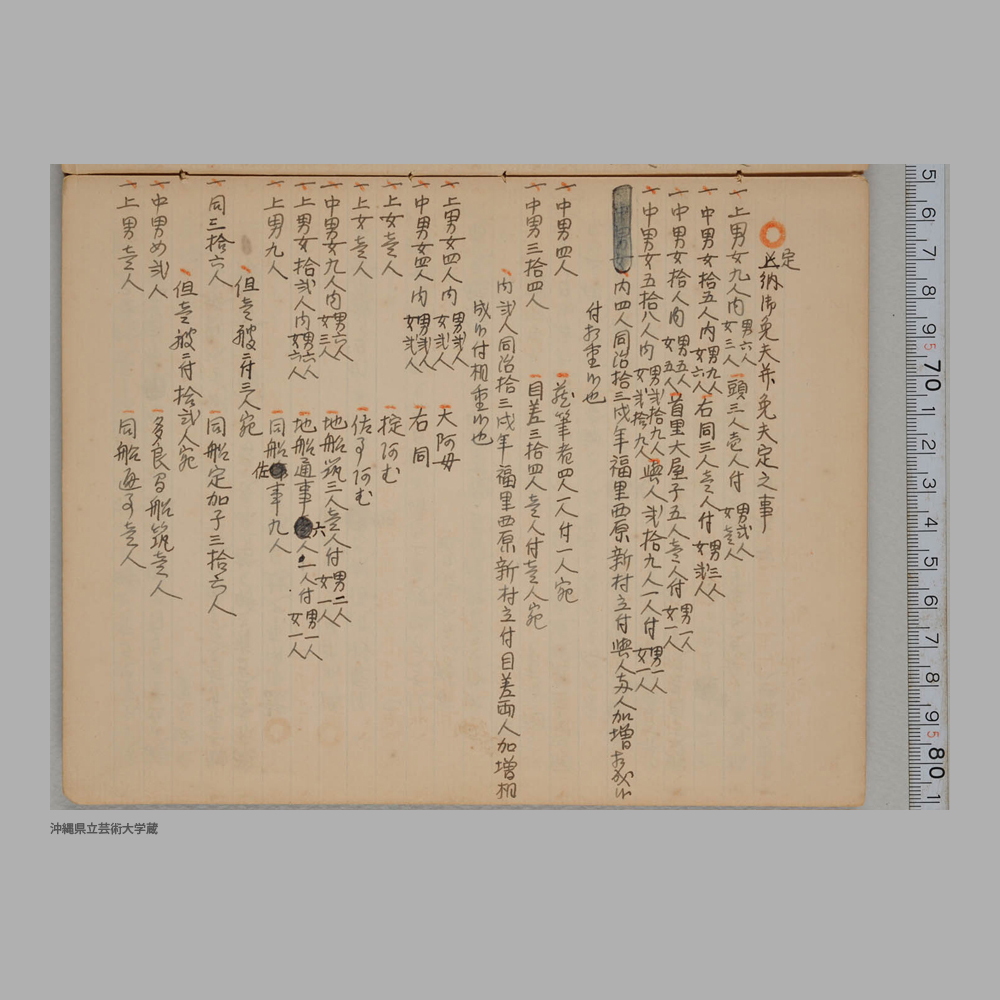 定納御免夫并免夫定之事
一上男女九人内男六人女三人 一頭三人壱人付男弐人女壱人
一中男女拾五人内男九人女六人 一右同三人壱人付男三人女弐人
一中男女拾人内男五人女五人 一首里大屋子五人壱人付男一人女一人
一中男女五拾八人内男弐拾九人女弐拾九人 一與人弐拾九人一人付男一人女一人
内四人同治拾三戌年福里西原新村立付與人両人加増相成ル
付相重ル也
一中男四人 一蔵筆者四人一人付一人宛
一中男三拾四人 一目差三拾四人壱人付壱人宛
内弐人同治拾三戌年福里西原新村立付目差両人加増相
成ル付相重ル也
一上男女四人内男弐人女弐人 一大阿母
一中男女四人内男弐人女弐人 一右同
一上女壱人 一掟阿む
一上女壱人 一佐事阿む
一中男女九人内男六人女三人 一地船筑三人壱人付男二人女一人
一上男女拾弐人内男六人女六人 一地船通事六人一人付男一人女一人
一上男九人 一同船佐事九人
但壱艘ニ付三人宛
一同三拾六人 一同船定加子三拾六人
但壱艘ニ付拾弐人宛
一中男め弐人 一多良間船筑壱人
一上男壱人 一同船通事壱人
5 6 7 8 9 70 1 2 3 4 5 6 7 8 9 80 1
沖縄県立芸術大学蔵